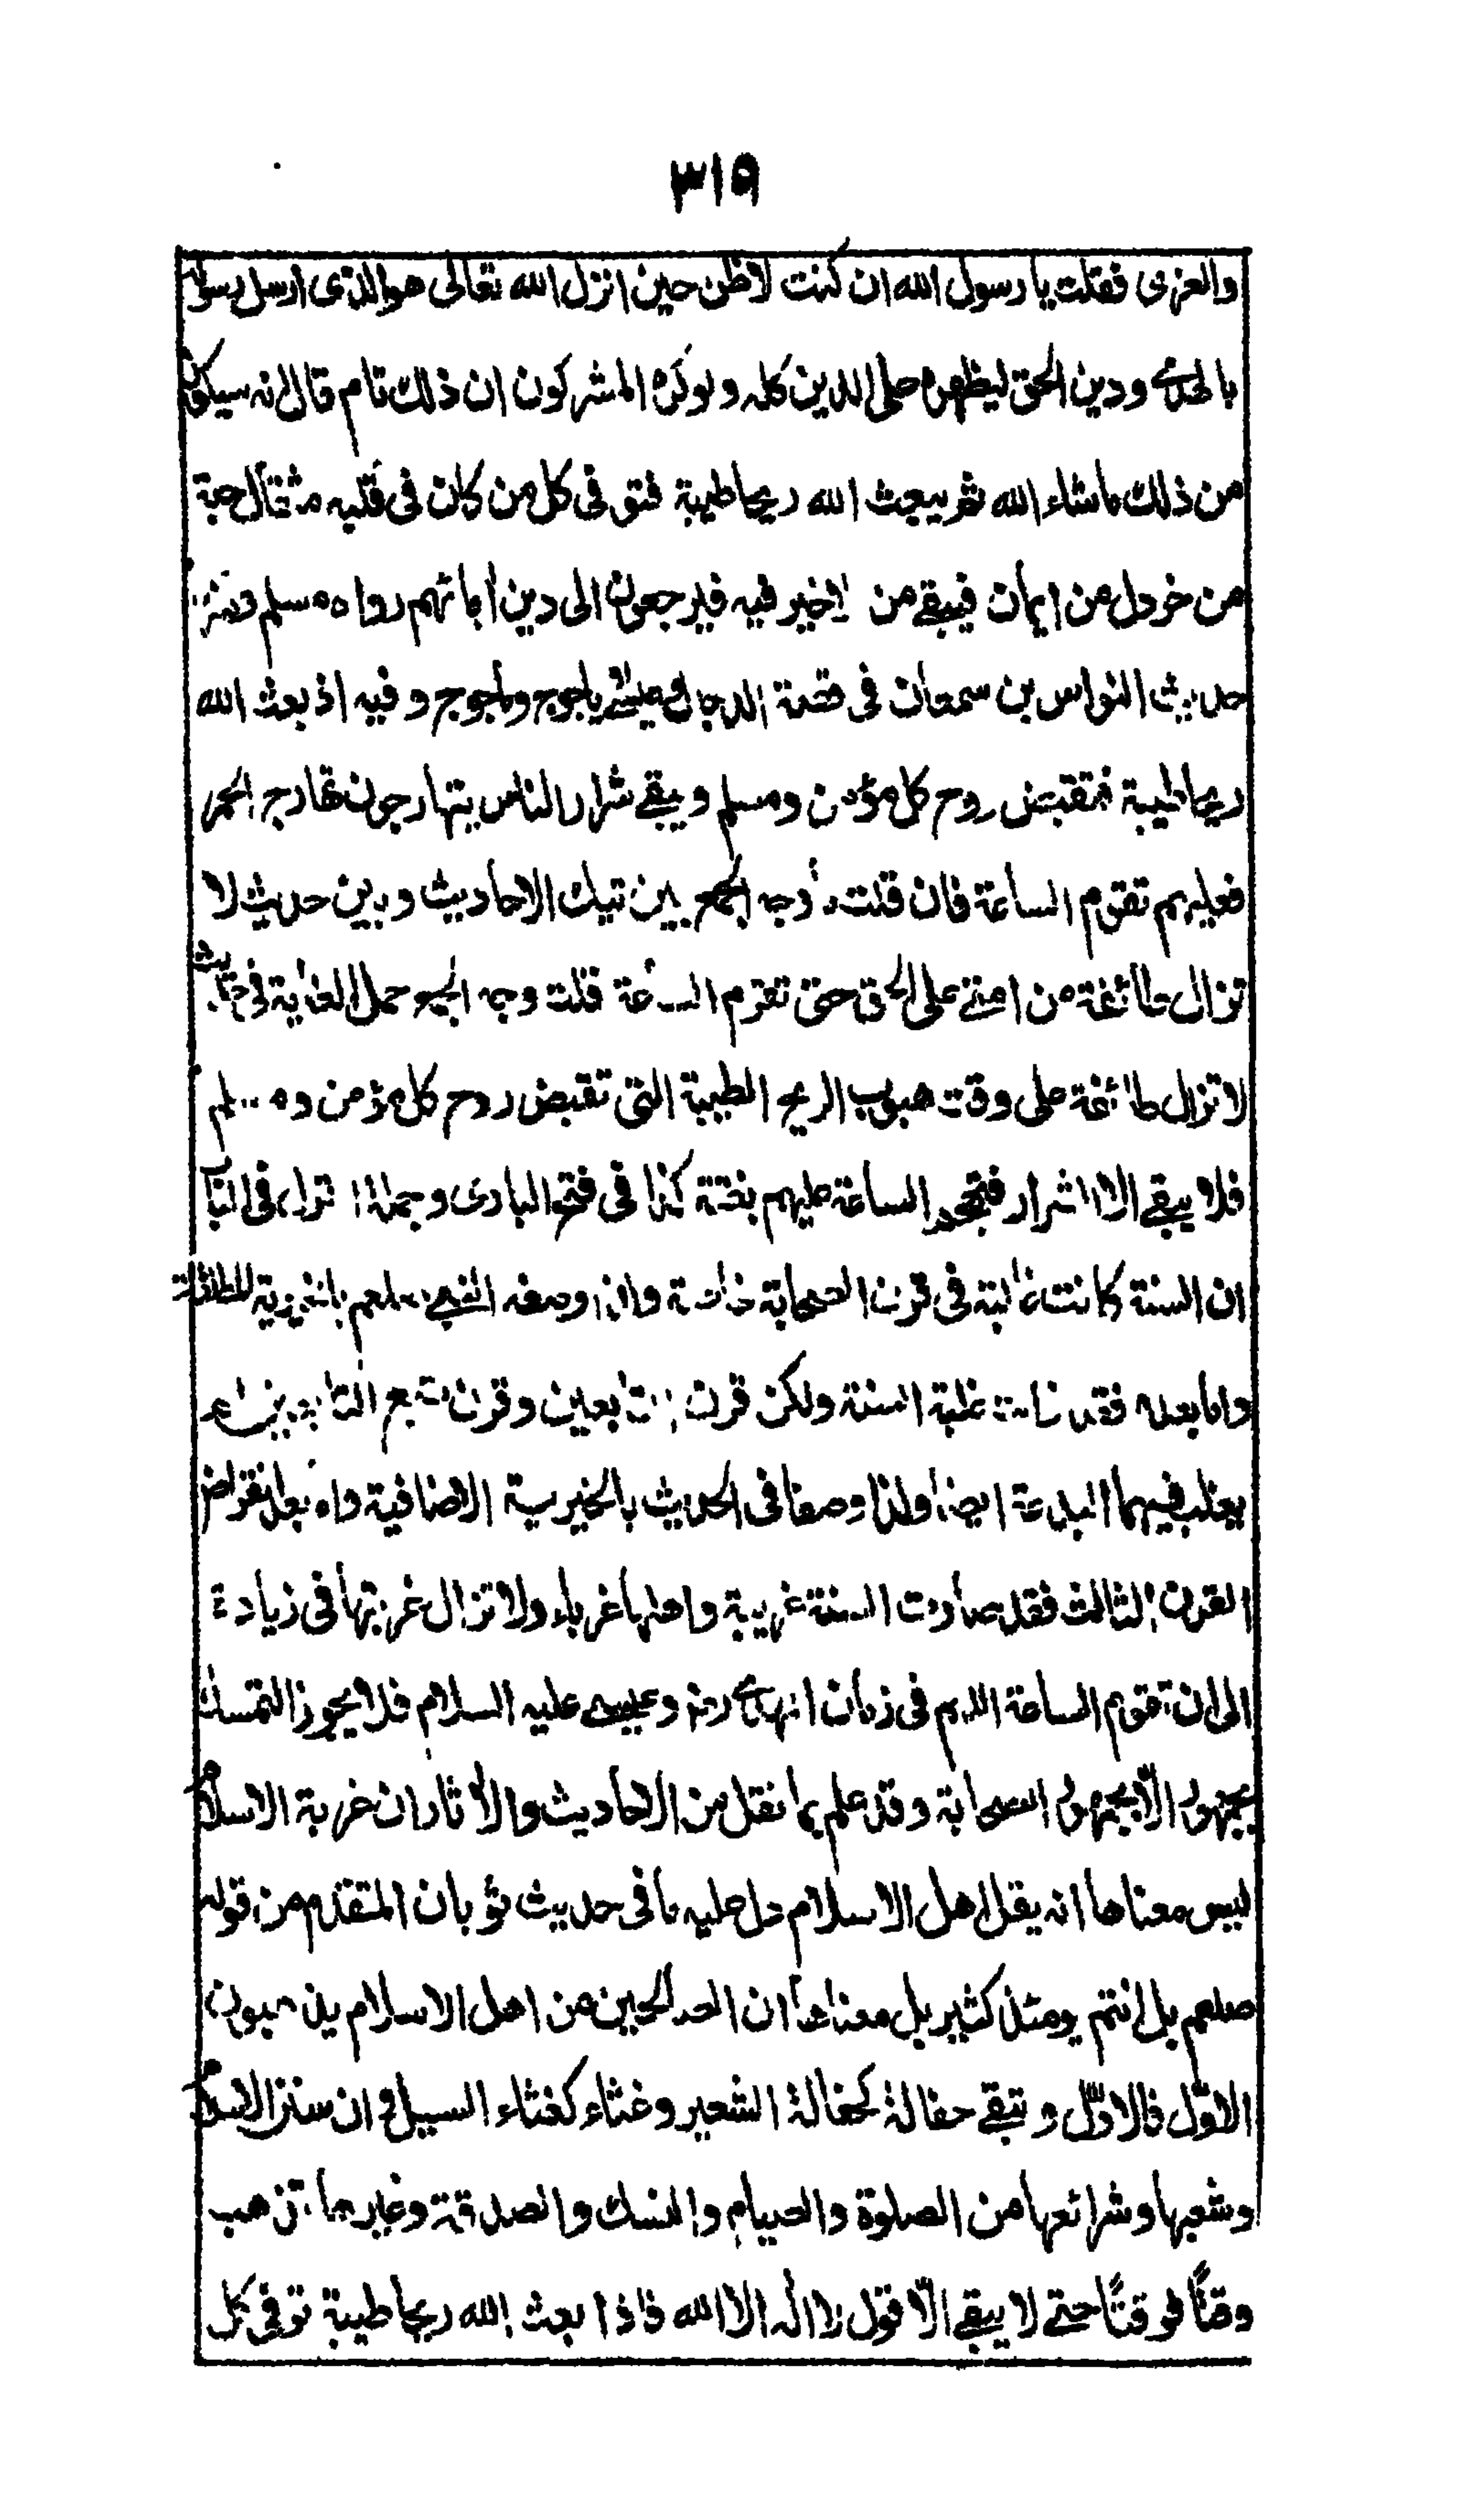 ٣١٥
والعزى فقلت يا رسول الله ان كنت لاظن حين انزل الله تعالى هو الذى ارسل رسوله
بالهدى ودين الحق ليظهره على الدين كله ولو كره المشركون ان ذلك تام قال انه سيكون
من ذلك ما شاء الله ثم يبعث الله ريحا طيبة فتوفى كل من كان فى قلبه مثقال حبة
من خردل من ايمان فيبقى من لا خير فيه فيرجعون الى دين آبائهم رواه مسلم
حديث النواس بن سمعان فى قصة الدجال وعيسى وياجوج وماجوج وفيه اذ بعث الله
ريحا طيبة فتقبض روح كل مؤمن ومسلم ويبقى شرار الناس يتهارجون تهارج الحمر
فعليهم تقوم الساعة فان قلت ما وجه الجمع بين تيك الاحاديث وبين حديث لا
تزال طائفة من امتى على الحق حتى تقوم الساعة قلت وجه الجمع حمل الغاية فى حديث
لا تزال طائفة على وقت هبوب الريح الطيبة التى تقبض روح كل مؤمن ومسلم
فلا يبقى الا الشرار فتهجم الساعة عليهم بغتة كذا فى فتح البارى وجملة
ان السنة كانت غالبة فى قرن الصحابة خاصة ولذا وصفه النبى صلعم بالخيرية المطلقة
واما بعده فقد فاتت غلبة السنة ولكن قرن التابعين وقرن تبع التابعين لم
يغلب فيهما البدعة ايضا ولذا وصفا فى الحديث بالخيرية الاضافية واما بعد انقراض
القرن الثالث فقد صارت السنة غريبة واهلها غرباء ولا تزال غربتها فى زيادة
الى ان تقوم الساعة اللهم فى زمان المهدى رضه وعيسى عليه السلام فلا يجوز التمسك
بجمهور الا بجمهور الصحابة وقد علم بما نقل من الاحاديث والآثار ان غربة الاسلام
ليس معناها انه يقل اهل الاسلام دل عليه ما فى حديث ثوبان المتقدم من قوله
صلعم بل انتم يومئذ كثير بل معناها ان الصالحين من اهل الاسلام يذهبون
الاول فالاول وتبقى حفالة كحفالة الشعير وغثاء كغثاء السيل وان سنن الاسلام
وشعبها وشرائعها من الصلوة والصيام والنسك والصدقة وغيرها تذهب
وقتا فوقتا حتى لا يبقى الا قول لا اله الا الله فاذا بعث الله ريحا طيبة توفى كل